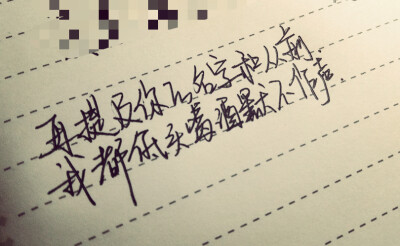 再提及你的名字和从前
我都低头喝酒默不作声